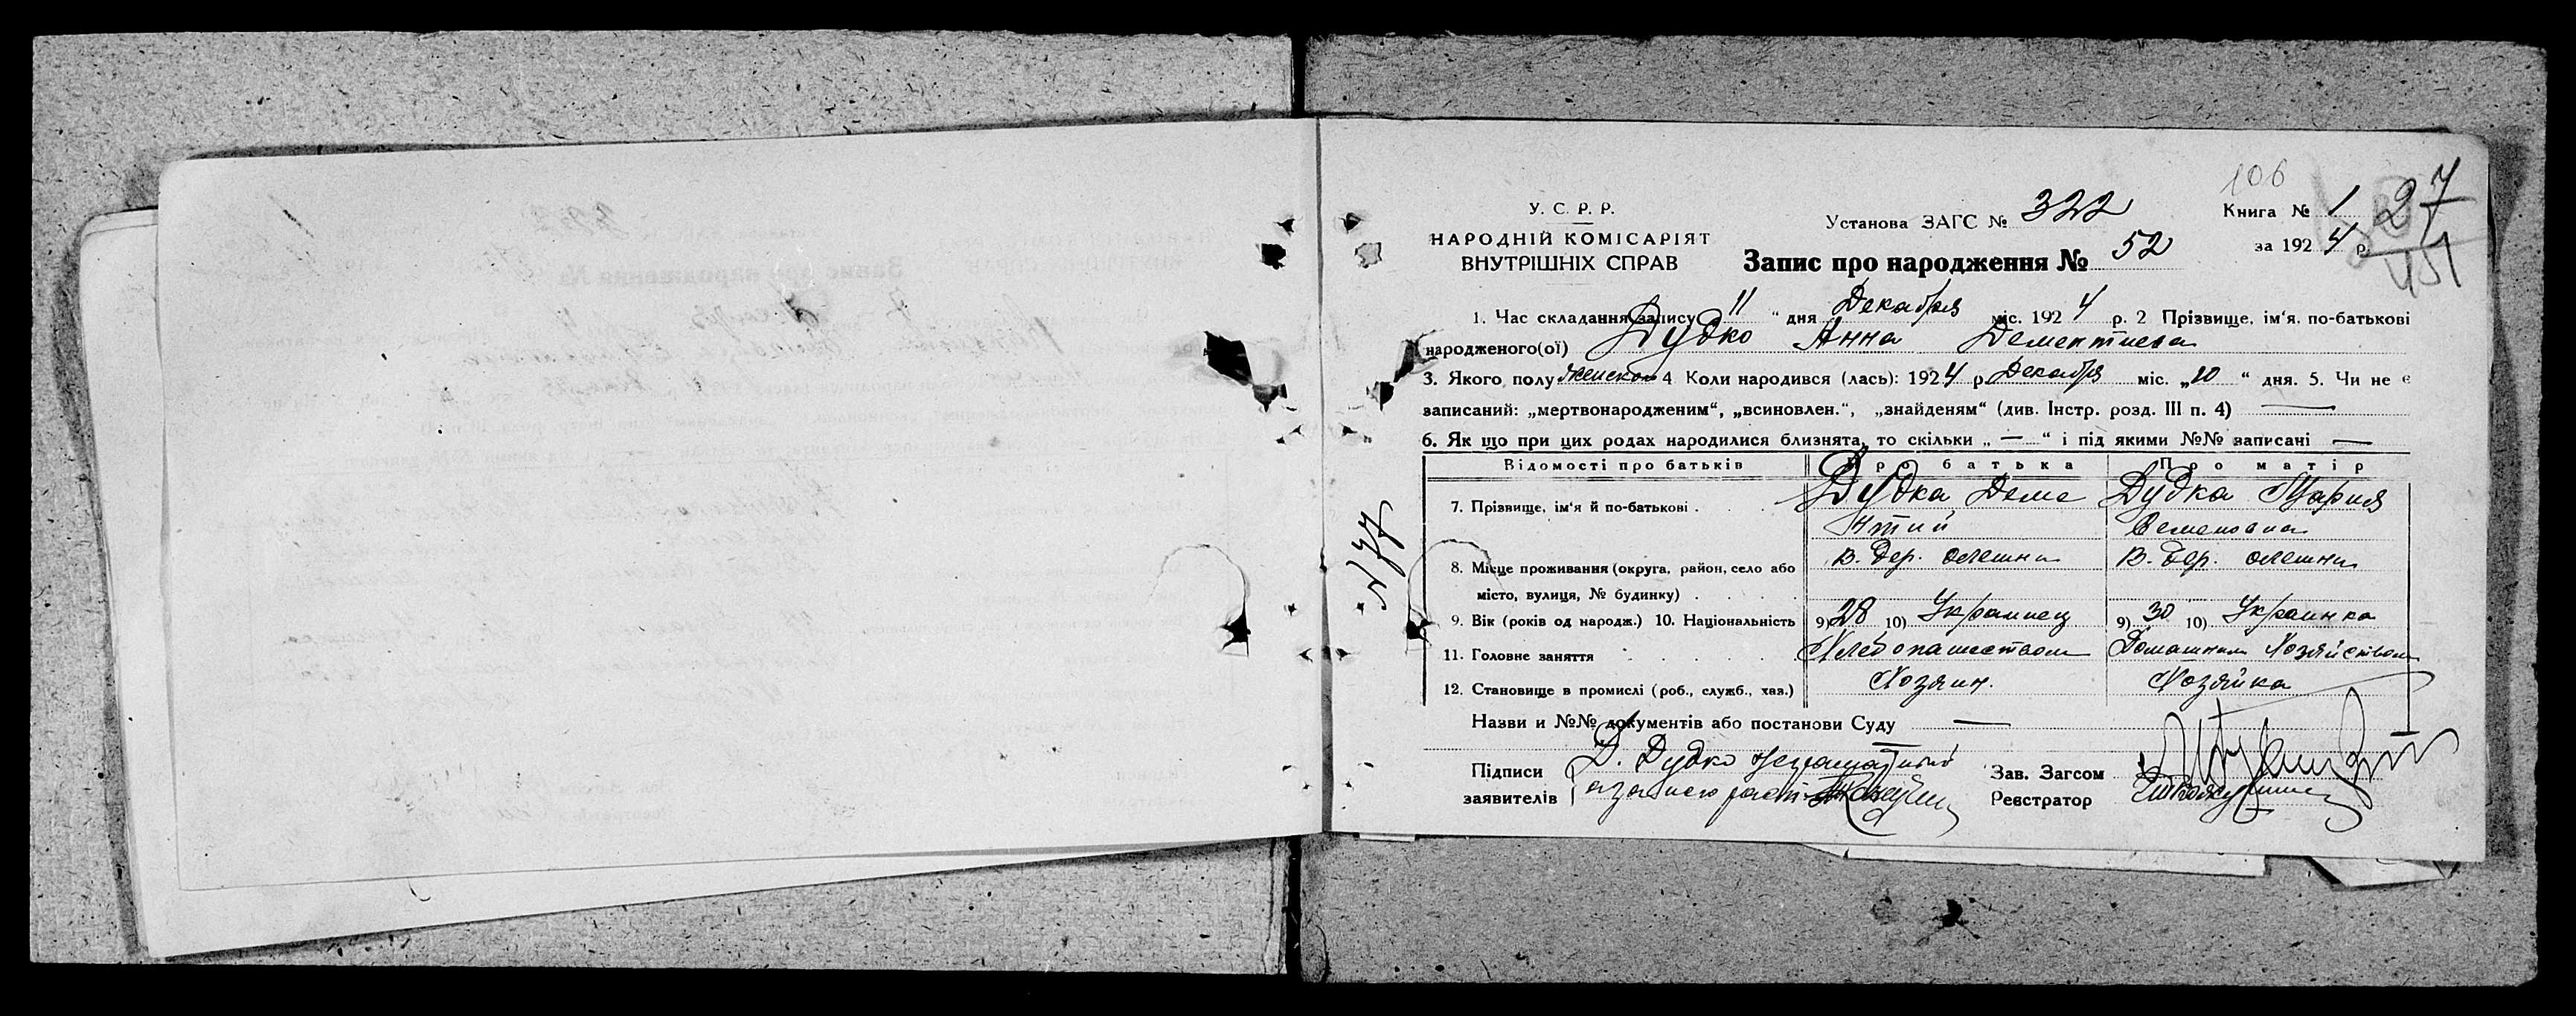 106
У. С. Р. Р.
НАРОДНІЙ КОМІСАРІЯТ
ВНУТРІШНІХ СПРАВ
Установа ЗАГС № 322
Книга № 1
за 1924 р.
27
451
Запис про народження № 52
1. Час складання запису 11 " дня Декабря міс. 1924 р. 2 Прізвище, ім'я, по-батькові
народженого(ої) Дудко Анна Дементиева
3. Якого полу женскои 4 Коли народився (лась): 1924 р. Декабря міс. „10 “ дня. 5. Чи не є
записаний: „мертвонародженим“, „всиновлен.“, „знайденям“ (див. Інстр. розд. III п. 4) —
6. Як що при цих родах народилися близнята, то скільки „ — “ і під якими №№ записані —
Відомості про батьків Про батька Про матір
7. Прізвище, ім'я й по-батькові . Дудка Деме Дудка Мария
нтий Семеновна
8. Місце проживання (округа, район, село або В. Дер. олешни В. Дер. олешни
місто, вулиця, № будинку) .
9. Вік (років од народж.) 10. Національність 9) 28 10) Украинец 9) 30 10) Украинка
11. Головне заняття Хлебопашеством Домашним Хозяйством
12. Становище в промислі (роб., служб., хаз.) Хозяин. Хозяйка
Назви и №№ документів або постанови Суду —
Підписи Д. Дудко неграмотный
заявителів
Зав. Загсом
Реєстратор
№77